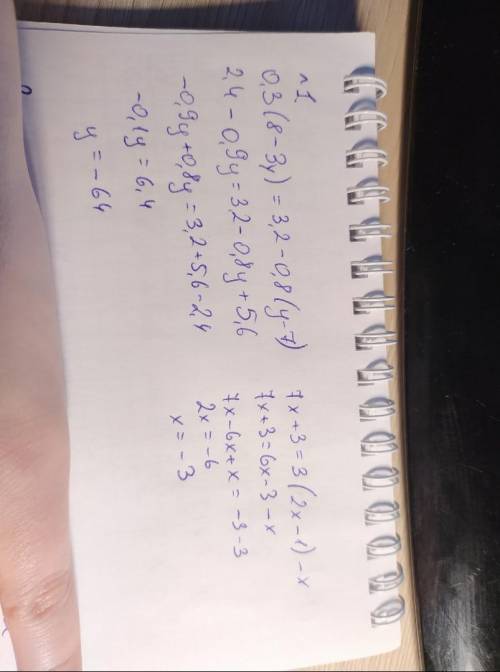 ^1
0,3(8-3y)=3,2-0,8(y-7)
2,4-0,9y=3,2-0,8y+5,6
-0,9y+0,8y=3,2+5,6-2,4
-0,1y=6,4
y=-64
7x+3=3(2x-1)-x
7x+3=6x-3-x
7x-6x+x=-3-3
2x=-6
x=-3